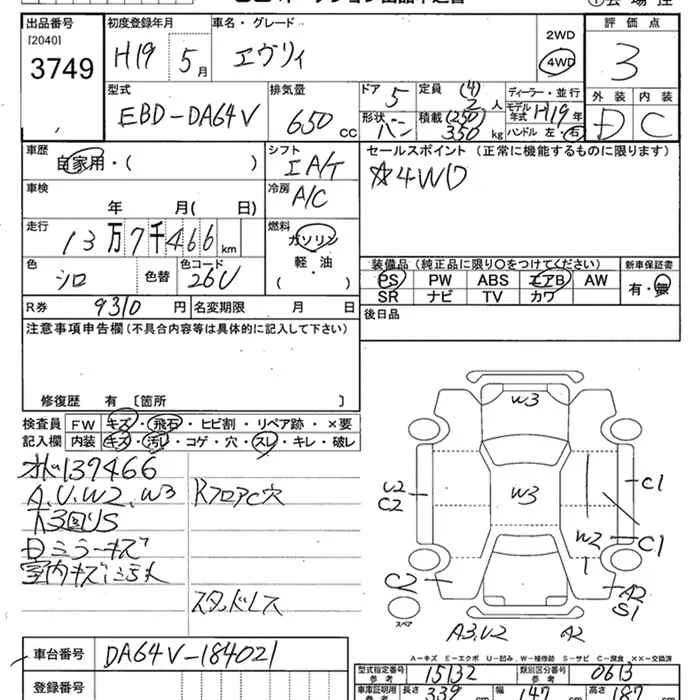 出品番号
[2040]
3749
初度登録年月
H19 5月
車名・グレード
エヴリィ
2WD
4WD
評価点
3
外装 内装
D C
型式
EBD-DA64V
排気量
650 cc
ドア
5
定員 (4)
2 人
ディーラー・並行
モデル年式 H19年
形状
バン
積載 (250)
350 kg
ハンドル 左・右
車歴
自家用・( )
シフト
I A/T
セールスポイント (正常に機能するものに限ります)
☆4WD
車検
年 月( 日)
冷房
A/C
走行
13万7千466km
燃料
ガソリン
軽・油
( )
色
シロ
色替
色コード
26U
装備品(純正品に限り○をつけてください)
新車保証書
PS PW ABS エアB AW
有・無
SR ナビ TV カワ
R券 9310円
名変期限 月 日
後日品
注意事項申告欄(不具合内容等は具体的に記入して下さい)
修復歴 有 〔箇所 〕
検査員 FW キズ・飛石・ヒビ割・リペア跡・×要
記入欄 内装 キズ・汚レ・コゲ・穴・スレ・キレ・破レ
137466
A.U.W2.W3
RフロアC穴
Dミラーキズ
室内キズ汚れ
スタッドレス
W3
W3
U2
C2
C1
W2
C1
C2
A2
S1
スペア
A3.U2
A2
A−キズ E−エクボ U−凹み W−補修跡 S−サビ C−腐食 ××−交換済
車台番号 DA64V-184021
型式指定番号 参考 15132
類別区分番号 参考 0613
登録番号
車庫証明用 参考 長さ 339 幅 147 高さ 187